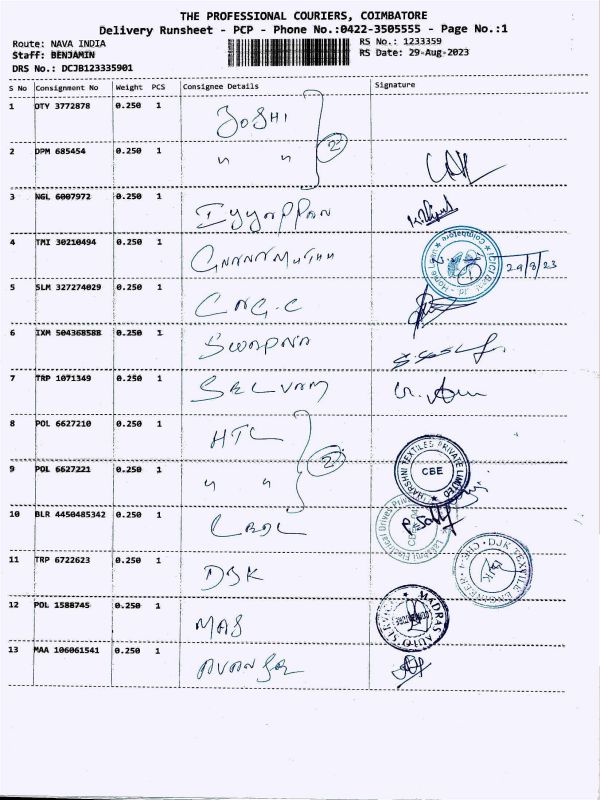 THE PROFESSIONAL COURIERS, COIMBATORE
Delivery Runsheet - PCP - Phone No.:0422-3505555 - Page No.:1
Route: NAVA INDIA
RS No.: 1233359
Staff: BENJAMIN
RS Date: 29-Aug-2023
DRS No.: DCJB123335901
S No Consignment No Weight PCS Consignee Details Signature
1 DTY 3772878 0.250 1 JOSHI
2
2 DPM 685454 0.250 1 " "
3 NGL 6007972 0.250 1 IYYAPPAN
4 TMI 30210494 0.250 1 GNANAMUTHU
29/8/23
5 SLM 327274029 0.250 1
6 IXM 504368588 0.250 1 SWAPNA
7 TRP 1071349 0.250 1 SELVAM
8 POL 6627210 0.250 1 HTL
2
9 POL 6627221 0.250 1 " "
HARSHNI TEXTILES PRIVATE LIMITED
CBE
10 BLR 4450485342 0.250 1
11 TRP 6722623 0.250 1 DJK
DJK
12 POL 1588745 0.250 1 MAS
MADRAS AUTO SERVICE
13 MAA 106061541 0.250 1